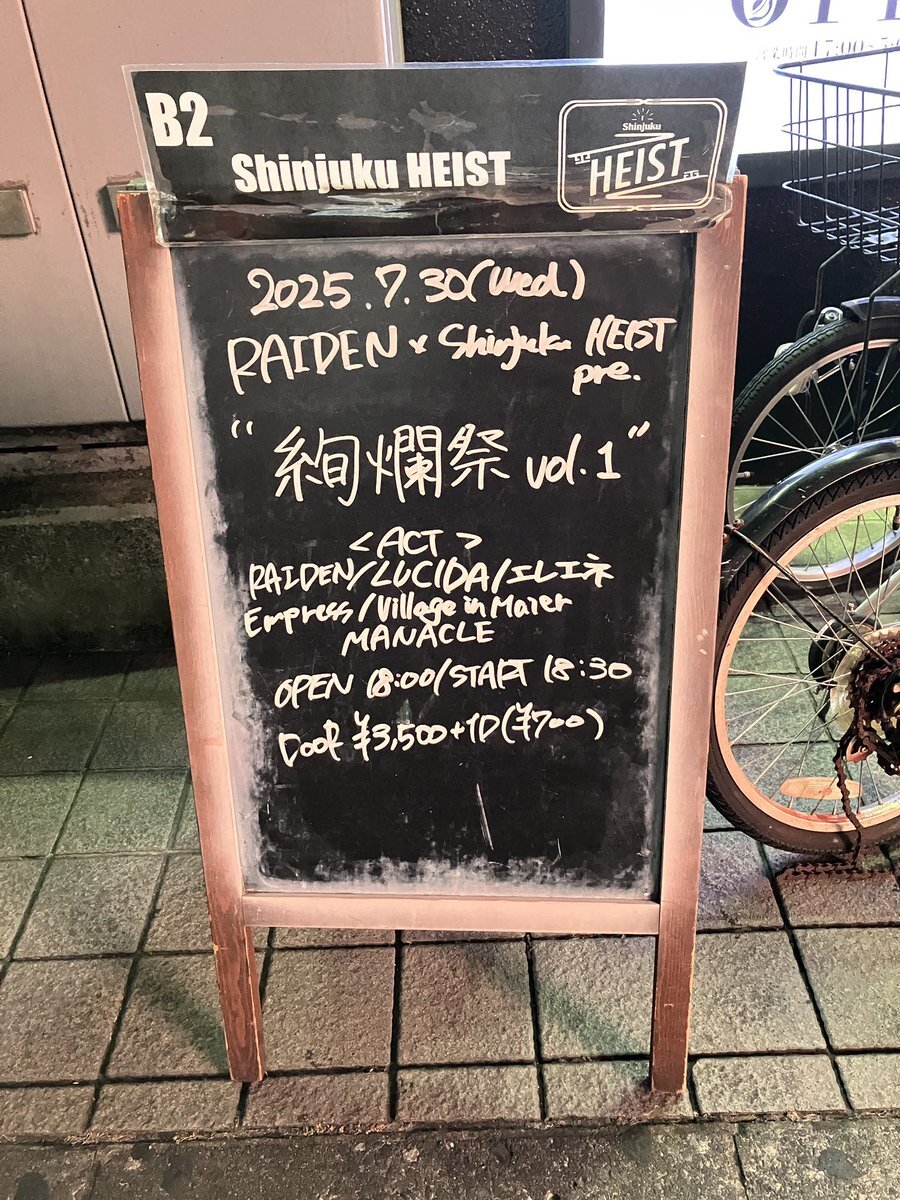 B2
Shinjuku HEIST
Shinjuku
HEIST
2025.7.30(Wed.)
RAIDEN × Shinjuku HEIST
pre.
"絢爛祭 vol.1"
<ACT>
RAIDEN/LUCIDA/エレエネ
Empress/Village in Maier
MANACLE
OPEN 18:00/START 18:30
Door ¥3,500+1D(¥700)